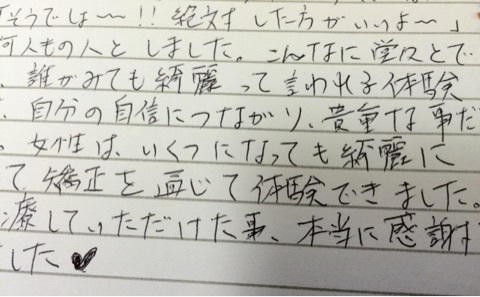 そうでしょ〜〜!!絶対した方がいいよ〜」
何人もの人としました。こんなに堂々とで
、誰がみても綺麗って言われる体験
、自分の自信につながり、貴重な事だ
。女性は、いくつになっても綺麗に
て矯正を通じて体験できました。
療していただけた事、本当に感謝す
した♥